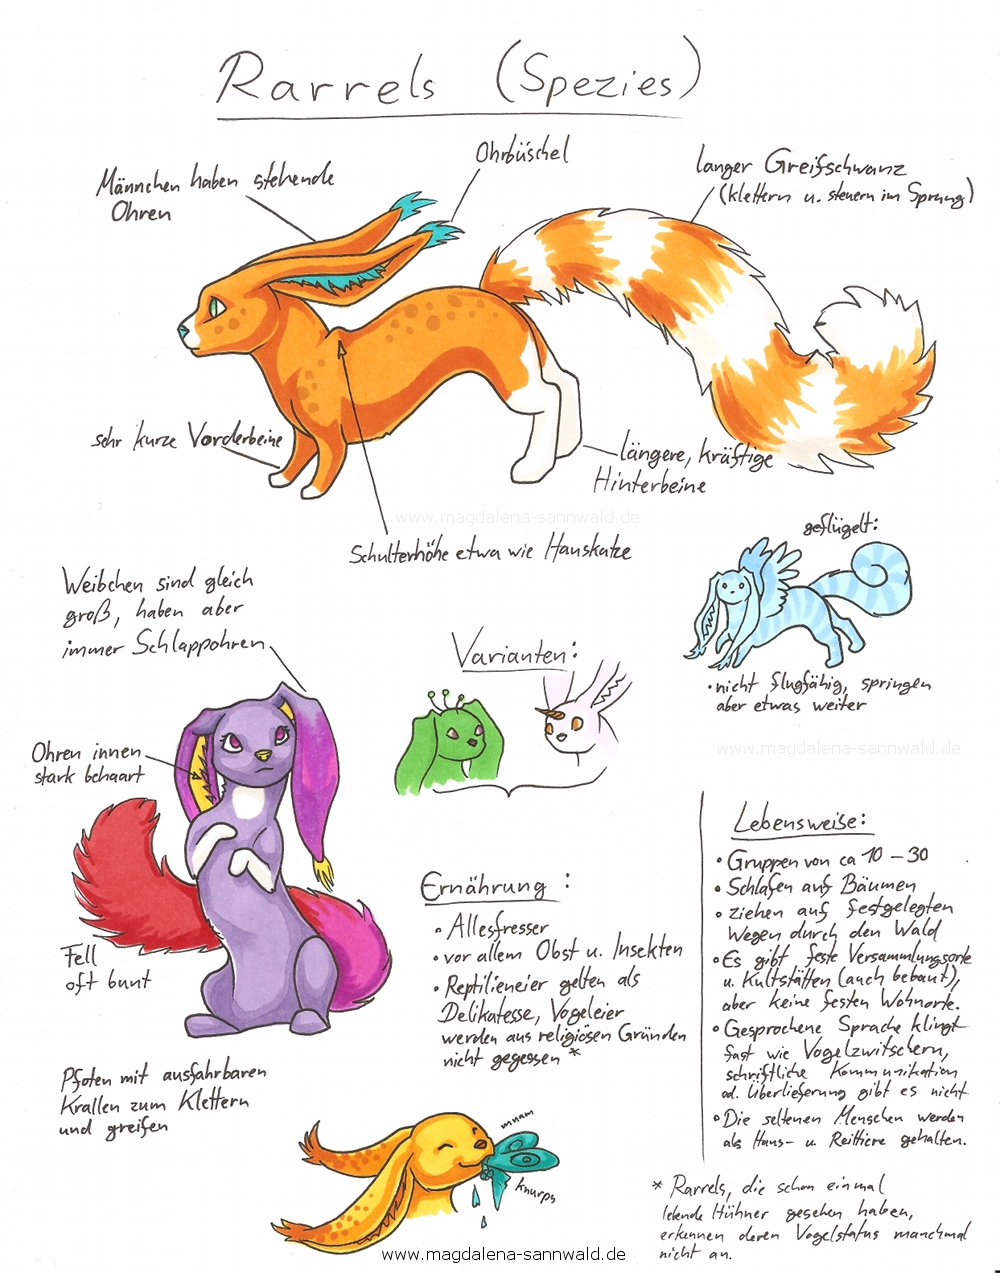 Rarrels (Spezies)
Männchen haben stehende
Ohren
Ohrbüschel
langer Greifschwanz
(klettern u. steuern im Sprung)
sehr kurze Vorderbeine
längere, kräftige
Hinterbeine
www.magdalena-sannwald.de
Schulterhöhe etwa wie Hauskatze
geflügelt:
• nicht flugfähig, springen
aber etwas weiter
Weibchen sind gleich
groß, haben aber
immer Schlappohren
Varianten:
www.magdalena-sannwald.de
Ohren innen
stark behaart
Fell
oft bunt
Pfoten mit ausfahrbaren
Krallen zum Klettern
und greifen
Ernährung:
• Allesfresser
• vor allem Obst u. Insekten
• Reptilieneier gelten als
Delikatesse, Vogeleier
werden aus religiösen Gründen
nicht gegessen *
mnam
knurps
Lebensweise:
• Gruppen von ca 10 – 30
• Schlafen auf Bäumen
• ziehen auf festgelegten
Wegen durch den Wald
• Es gibt feste Versammlungsorte
u. Kultstätten (auch bebaut),
aber keine festen Wohnorte.
• Gesprochene Sprache klingt
fast wie Vogelzwitschern,
schriftliche Kommunikation
od. Überlieferung gibt es nicht
• Die seltenen Menschen werden
als Haus- u. Reittiere gehalten.
* Rarrels, die schon einmal
lebende Hühner gesehen haben,
erkennen deren Vogelstatus manchmal
nicht an.
www.magdalena-sannwald.de